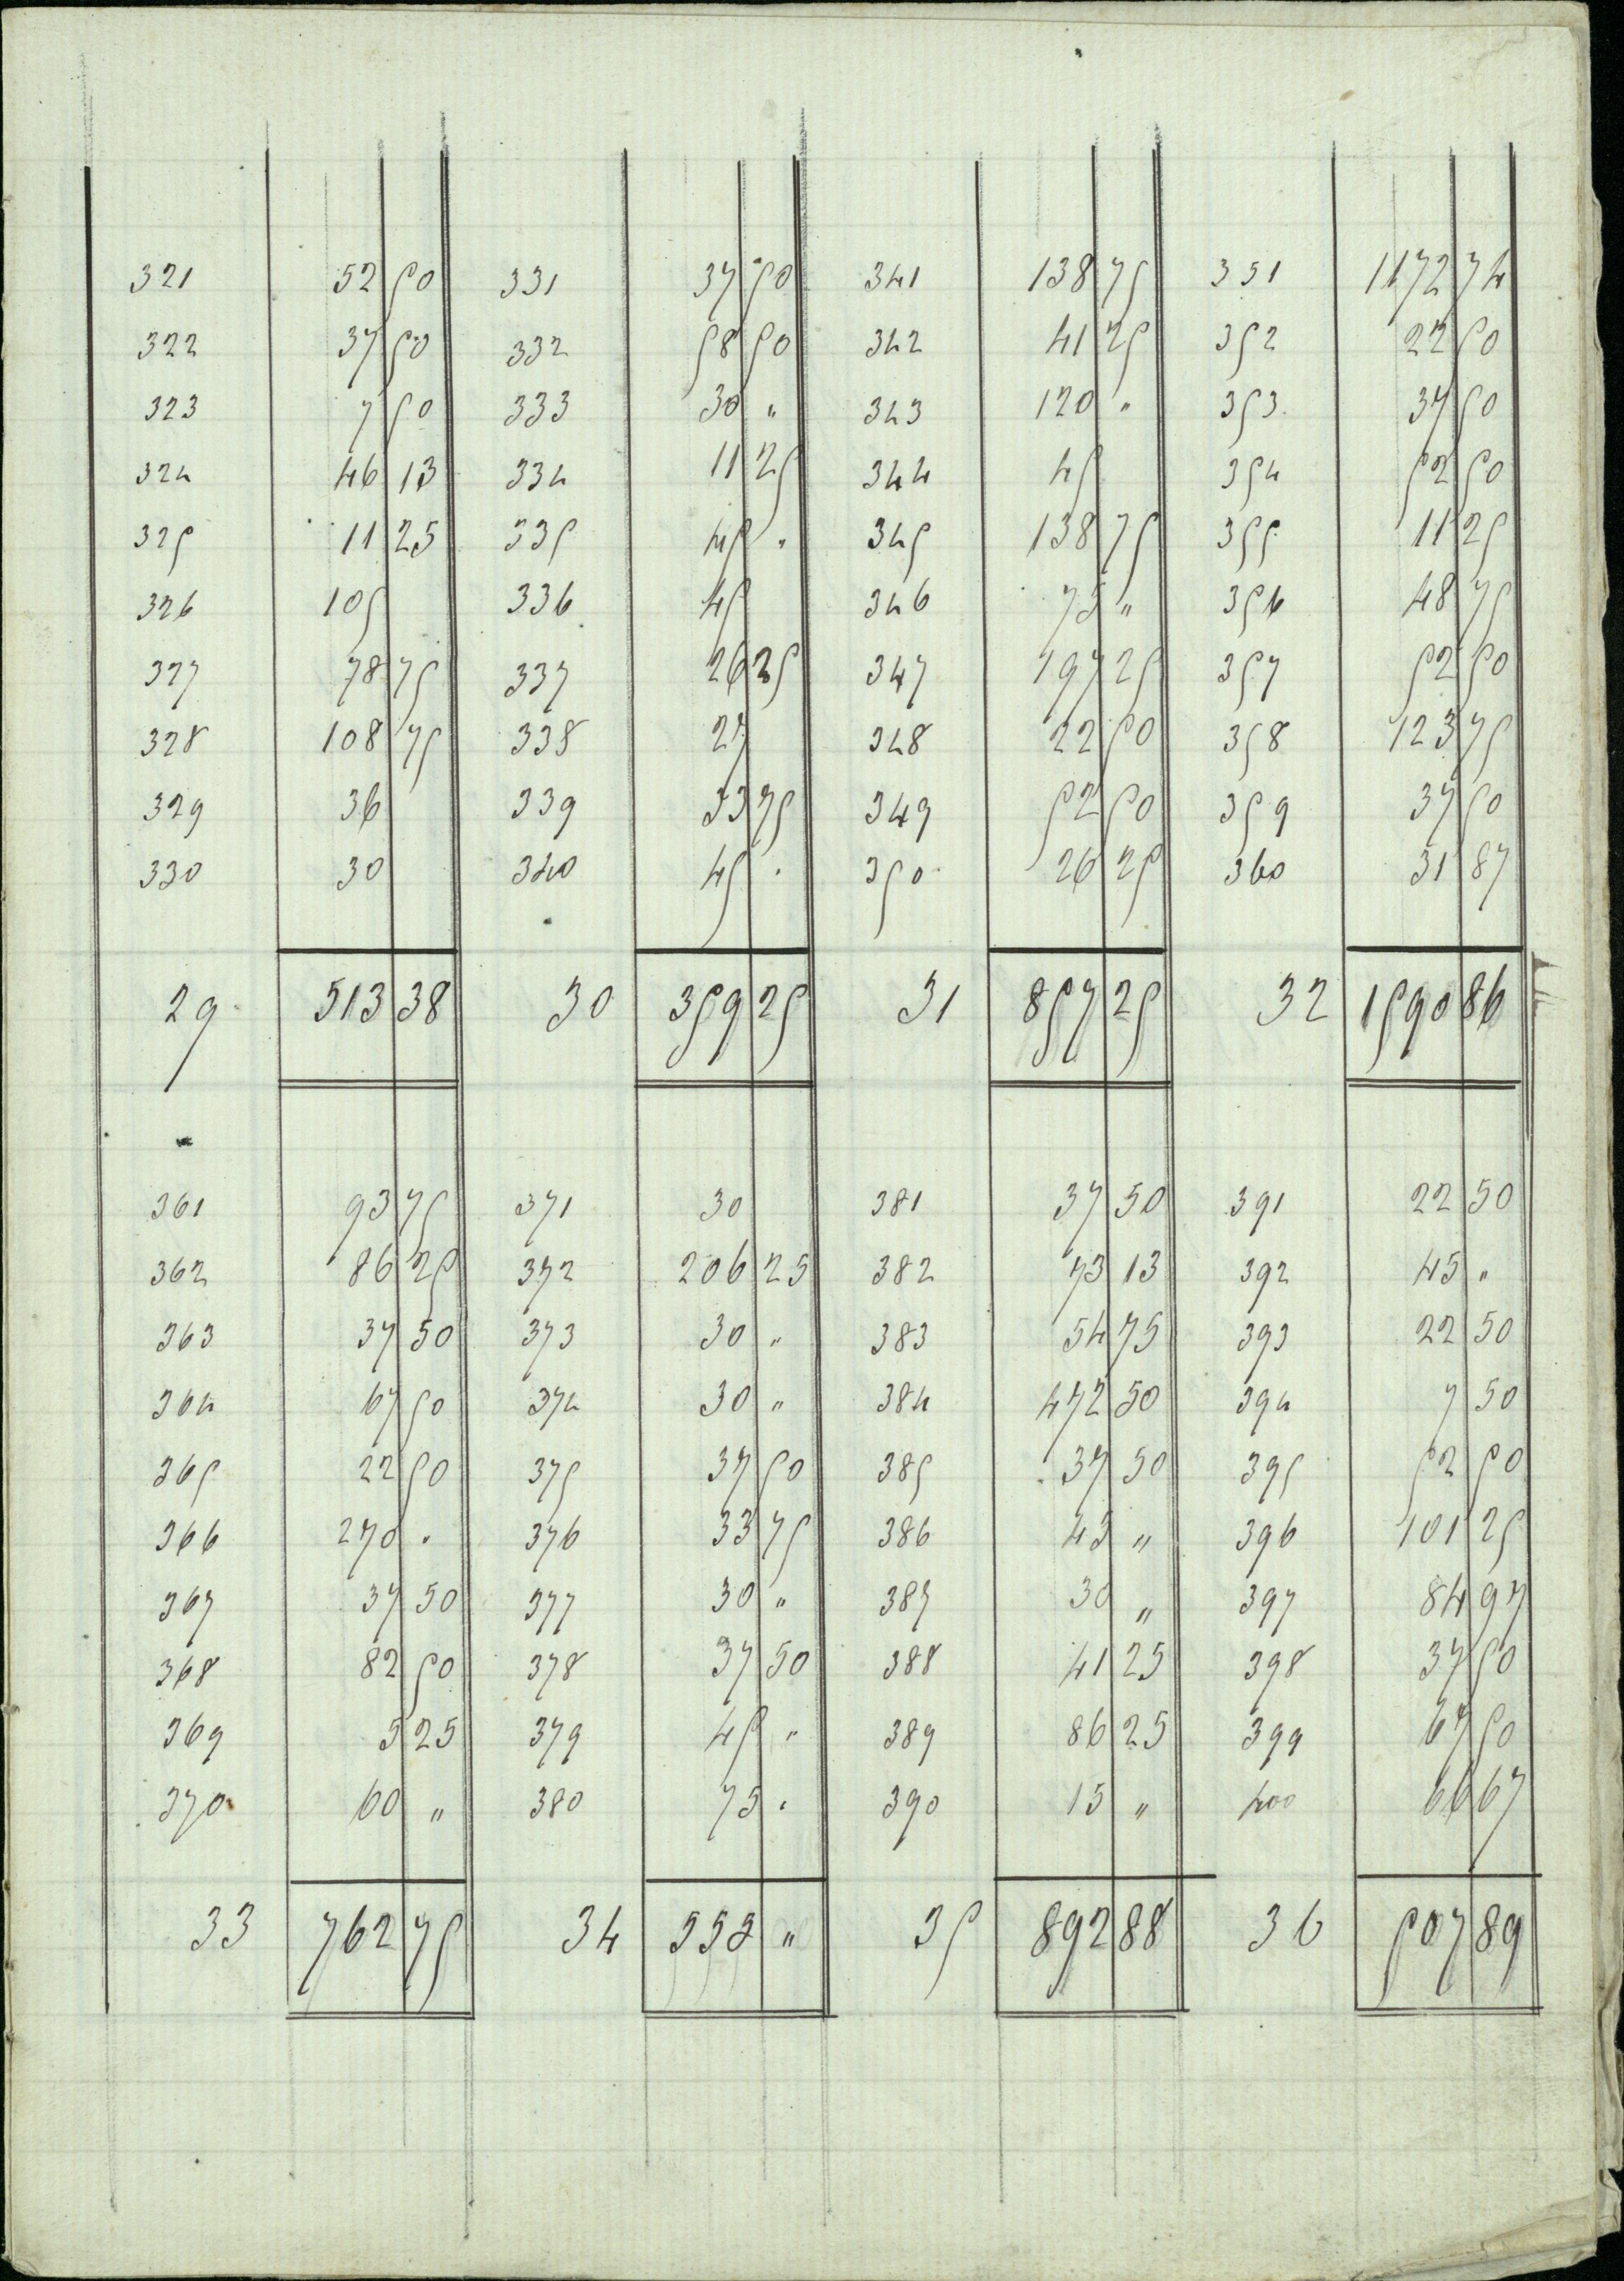 321 52 50 331 37 50 341 138 75 351 1172 74
322 37 50 332 58 50 342 41 25 352 22 50
323 7 50 333 30 " 343 120 " 353 37 50
324 46 13 334 11 25 344 45 354 52 50
325 11 25 335 45 " 345 138 75 355 11 25
326 105 336 45 346 75 " 356 48 75
327 78 75 337 26 25 347 197 25 357 52 50
328 108 75 338 27 348 22 50 358 123 75
329 36 339 33 75 349 52 50 359 37 50
330 30 340 45 " 350 26 25 360 31 87
29 513 38 30 359 25 31 857 25 32 1590 86
361 93 75 371 30 381 37 50 391 22 50
362 86 25 372 206 25 382 73 13 392 45 "
363 37 50 373 30 " 383 54 75 393 22 50
364 67 50 374 30 " 384 472 50 394 7 50
365 22 50 375 37 50 385 37 50 395 52 50
366 270 " 376 33 75 386 45 " 396 101 25
367 37 50 377 30 " 387 30 " 397 84 97
368 82 50 378 37 50 388 41 25 398 37 50
369 5 25 379 45 " 389 86 25 399 67 50
370 60 " 380 75 " 390 15 " 400 66 67
33 762 75 34 555 " 35 892 88 36 507 89